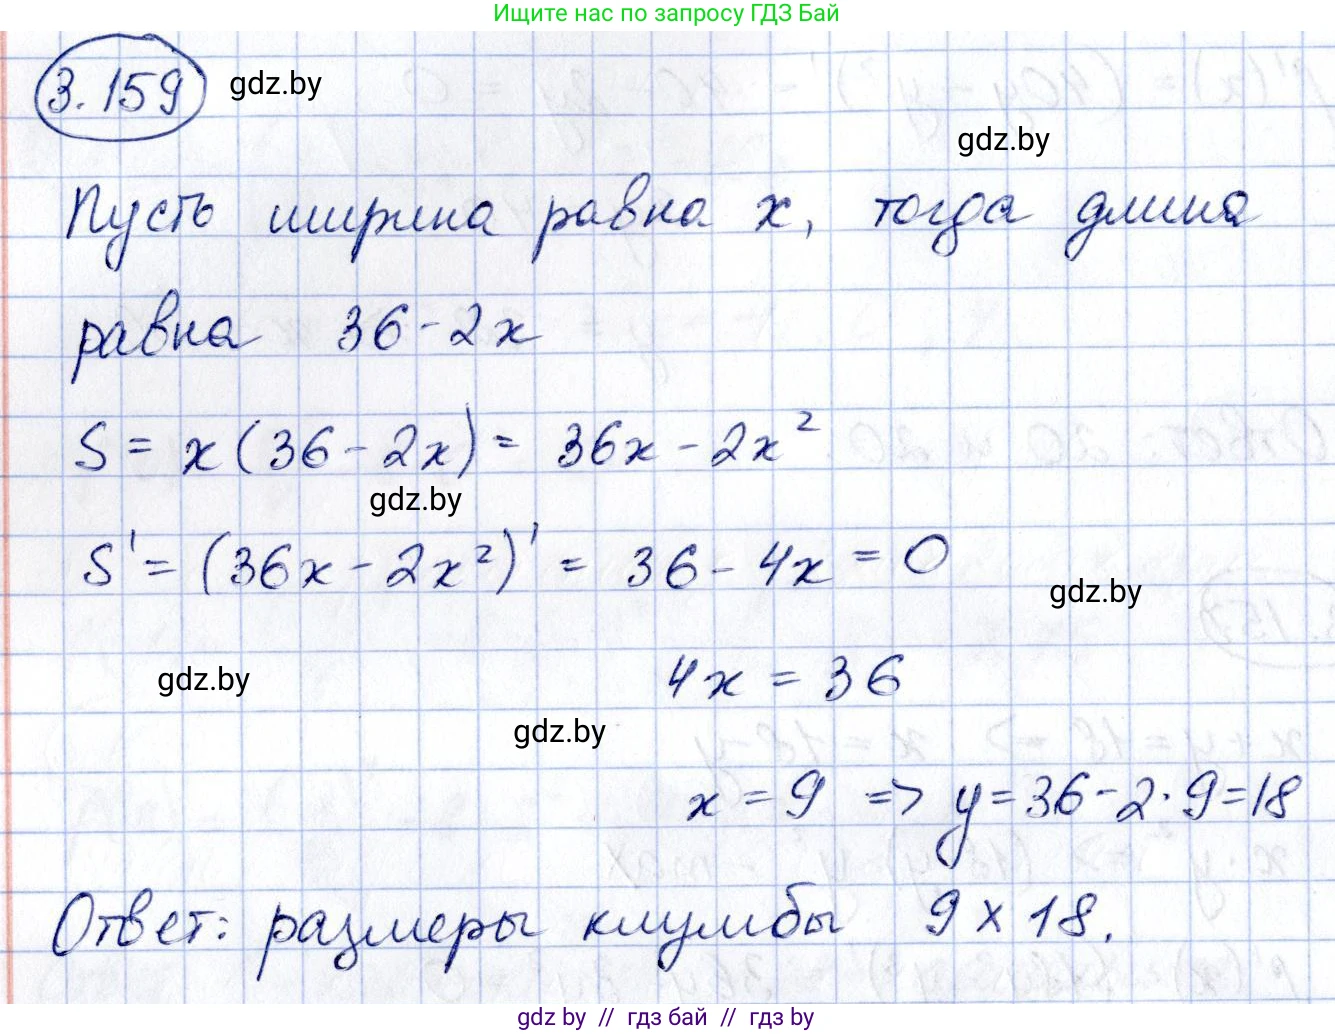 Ищите нас по запросу ГДЗ Бай
3.159 gdz.by
gdz.by
Пусть ширина равна x, тогда длина
равна 36-2x
S = x(36-2x) = 36x-2x²
gdz.by
S' = (36x-2x²)' = 36-4x = 0
gdz.by
4x = 36
gdz.by
gdz.by
x = 9 => y=36-2·9=18
Ответ: размеры клумбы 9 x 18.
gdz.by // гдз бай // гдз by